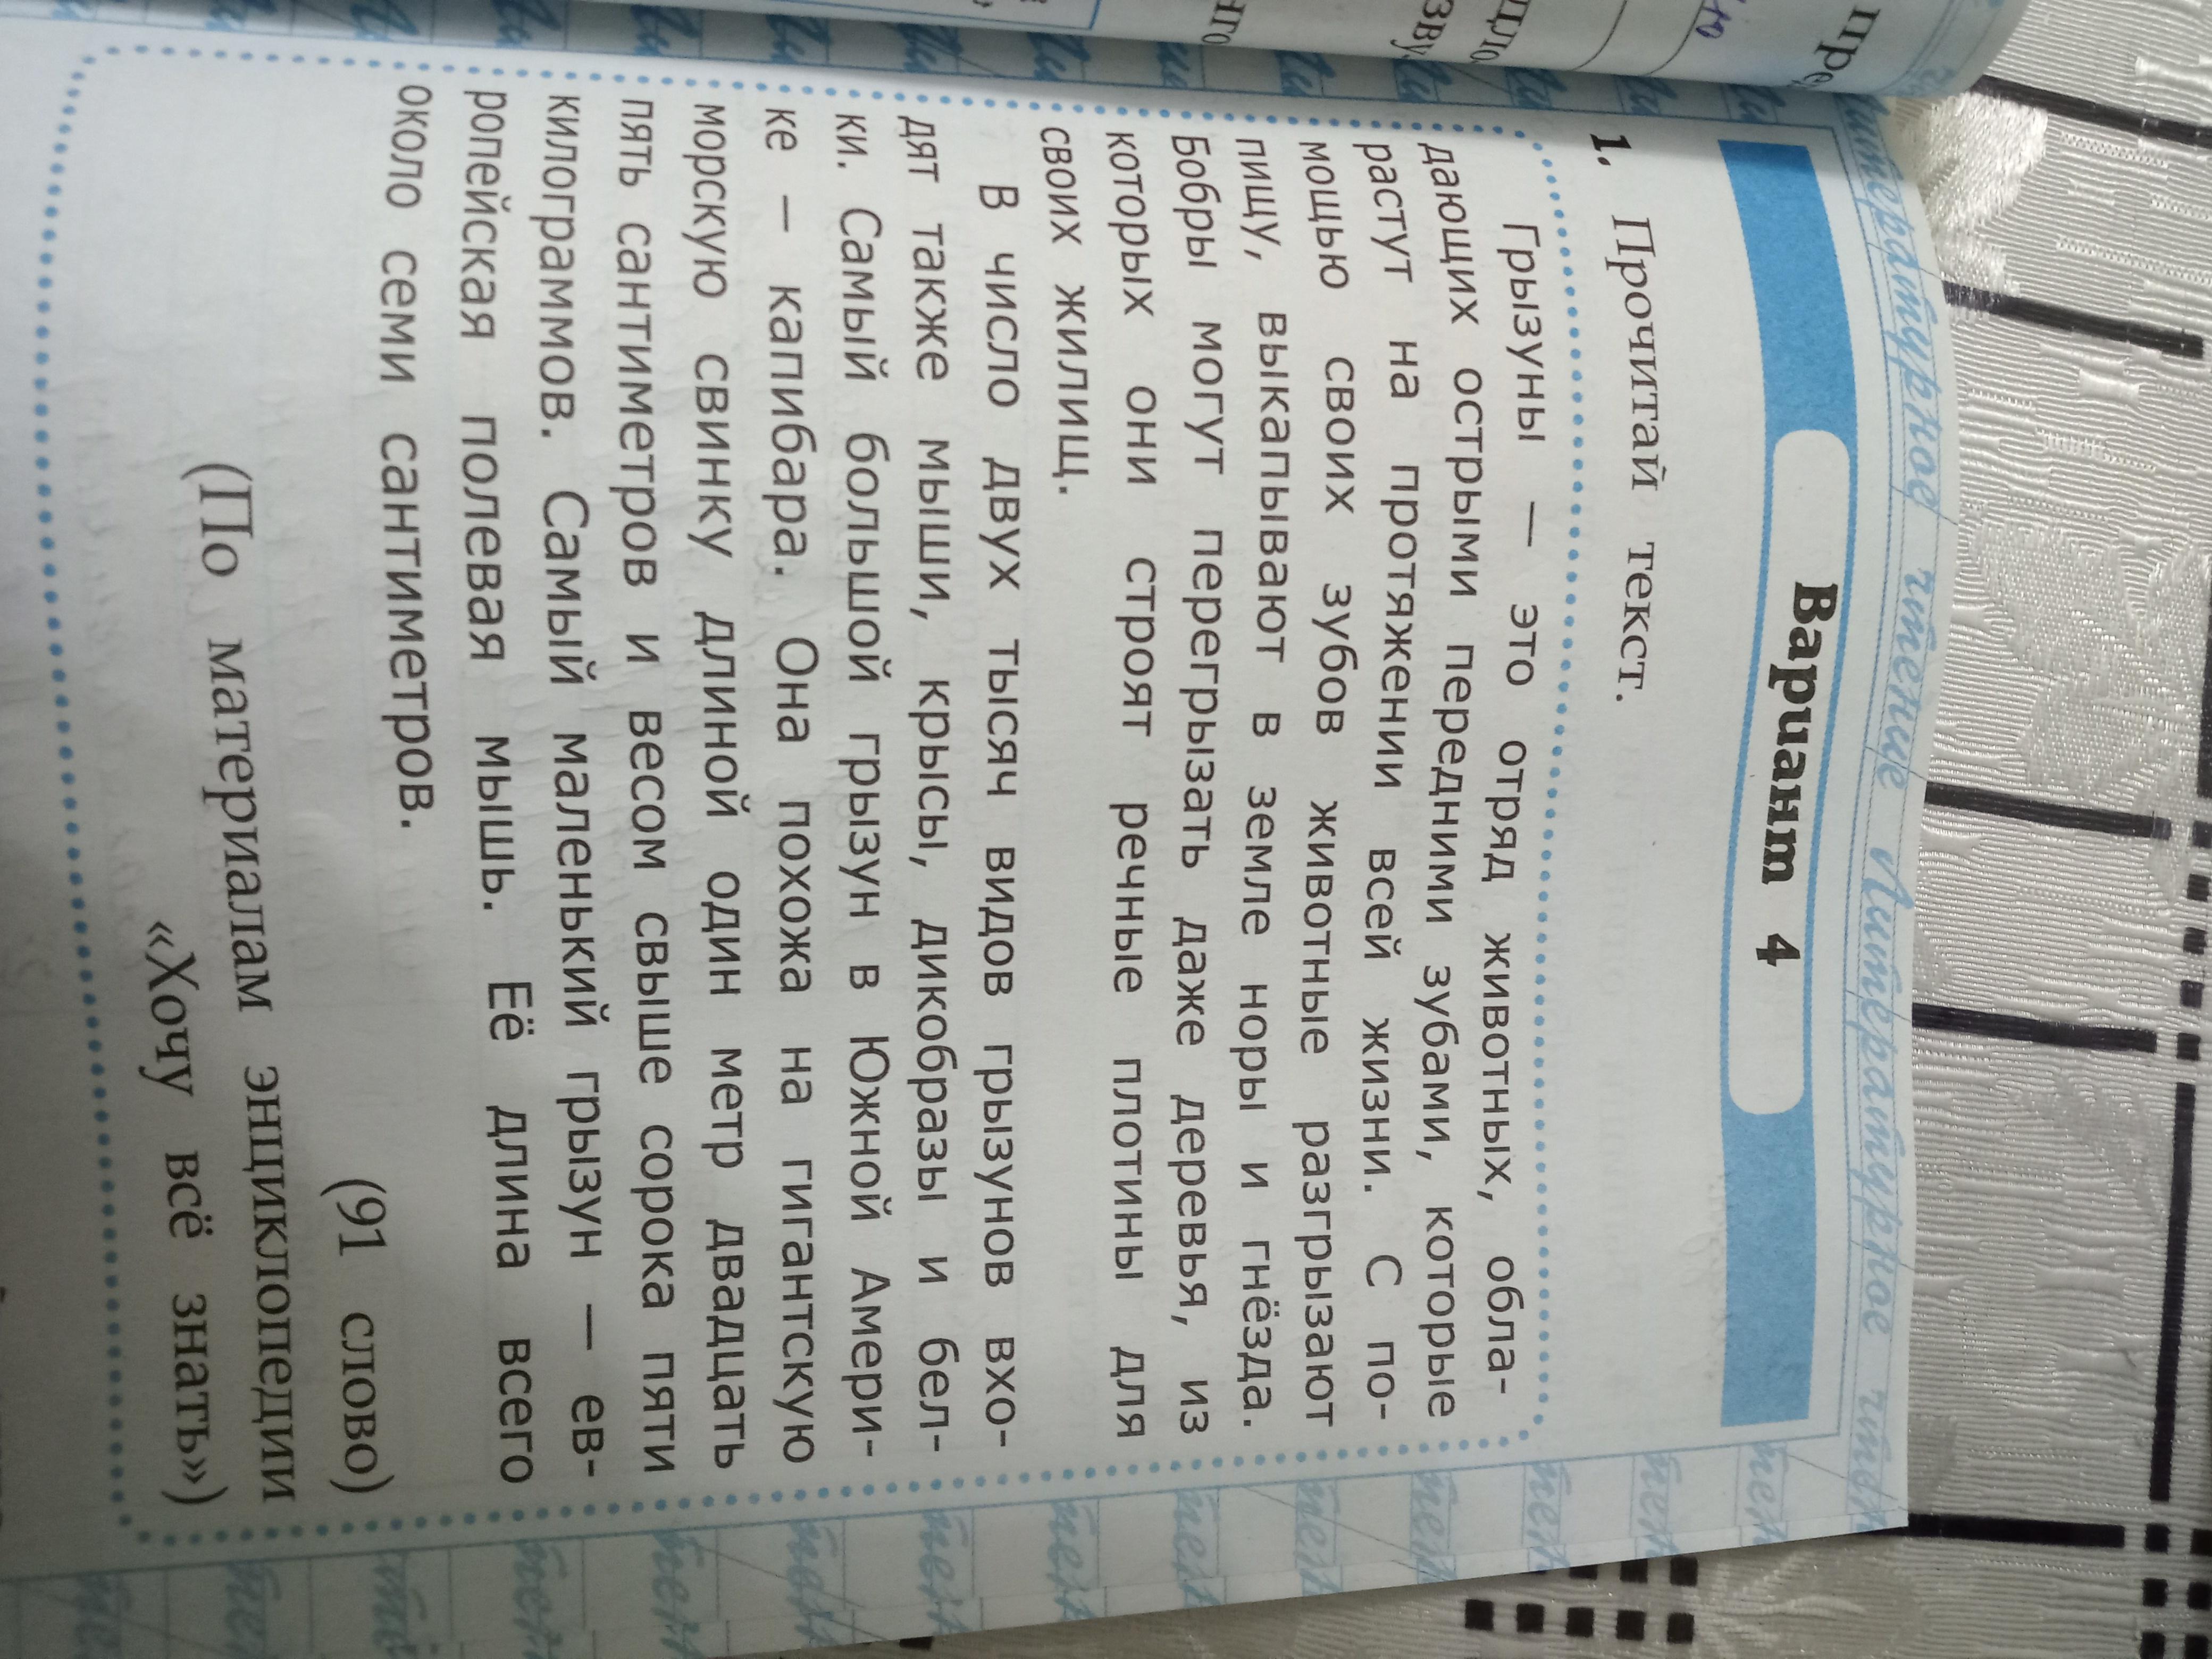 Литературное чтение Литературное чтен
Вариант 4
1. Прочитай текст.
Грызуны — это отряд животных, обла-
дающих острыми передними зубами, которые
растут на протяжении всей жизни. С по-
мощью своих зубов животные разгрызают
пищу, выкапывают в земле норы и гнёзда.
Бобры могут перегрызать даже деревья, из
которых они строят речные плотины для
своих жилищ.
В число двух тысяч видов грызунов вхо-
дят также мыши, крысы, дикобразы и бел-
ки. Самый большой грызун в Южной Амери-
ке — капибара. Она похожа на гигантскую
морскую свинку длиной один метр двадцать
пять сантиметров и весом свыше сорока пяти
килограммов. Самый маленький грызун — ев-
ропейская полевая мышь. Её длина всего
около семи сантиметров.
(91 слово)
(По материалам энциклопедии
«Хочу всё знать»)